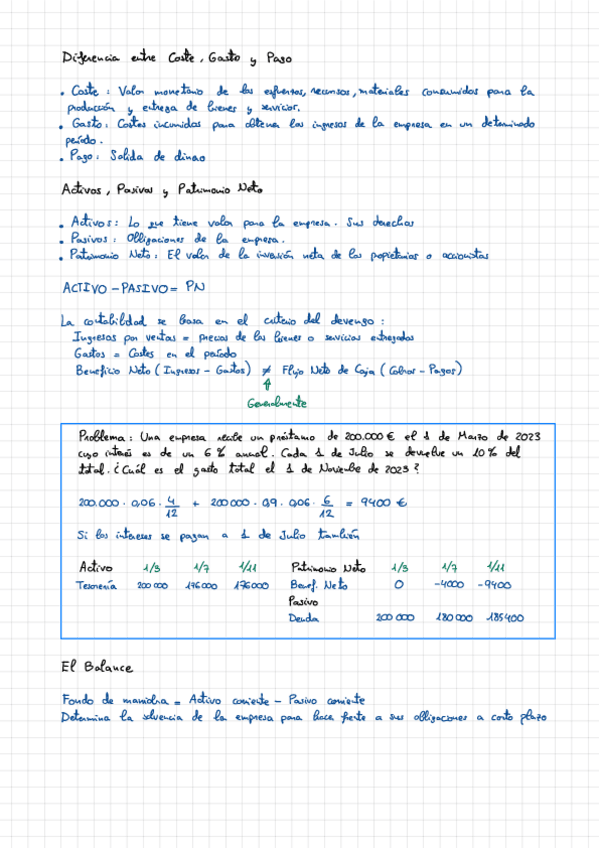 Diferencia entre Coste, Gasto y Pago
• Coste: Valor monetario de los esfuerzos, recursos, materiales consumidos para la
producción y entrega de bienes y servicios.
• Gasto: Costes incurridos para obtener los ingresos de la empresa en un determinado
período.
• Pago: Salida de dinero
Activos, Pasivos y Patrimonio Neto
• Activos: Lo que tiene valor para la empresa. Sus derechos
• Pasivos: Obligaciones de la empresa.
• Patrimonio Neto: El valor de la inversión neta de los propietarios o accionistas
ACTIVO - PASIVO = PN
La contabilidad se basa en el criterio del devengo:
Ingresos por ventas = precios de los bienes o servicios entregados
Gastos = Costes en el período
Beneficio Neto (Ingresos - Gastos) ≠ Flujo Neto de Caja (Cobros - Pagos)
↑
Generalmente
Problema: Una empresa recibe un préstamo de 200.000 € el 1 de Marzo de 2023
cuyo interés es de un 6% anual. Cada 1 de Julio se devuelve un 10% del
total. ¿Cuál es el gasto total el 1 de Noviembre de 2023?
200.000 · 0,06 · 4/12 + 200 000 · 0,9 · 0,06 · 6/12 = 9400 €
Si los intereses se pagan a 1 de Julio también
Activo 1/3 1/7 1/11 Patrimonio Neto 1/3 1/7 1/11
Tesorería 200 000 176 000 176 000 Benef. Neto 0 -4000 -9400
Pasivo
Deuda 200 000 180 000 185400
El Balance
Fondo de maniobra = Activo corriente - Pasivo corriente
Determina la solvencia de la empresa para hacer frente a sus obligaciones a corto plazo